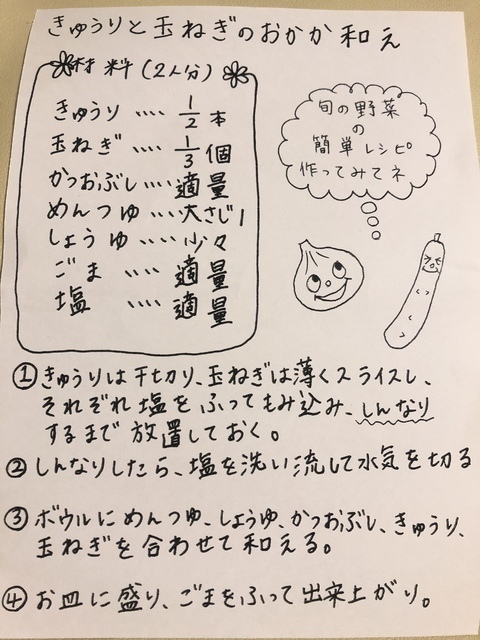 きゅうりと玉ねぎのおかか和え
材料(2人分)
きゅうり‥‥1/2本
玉ねぎ‥‥1/3個
かつおぶし‥‥適量
めんつゆ‥‥大さじ1
しょうゆ‥‥少々
ごま‥‥適量
塩‥‥適量
旬の野菜
の
簡単レシピ
作ってみてネ
①きゅうりは千切り、玉ねぎは薄くスライスし、
それぞれ塩をふってもみ込み、しんなり
するまで放置しておく。
②しんなりしたら、塩を洗い流して水気を切る
③ボウルにめんつゆ、しょうゆ、かつおぶし、きゅうり、
玉ねぎを合わせて和える。
④お皿に盛り、ごまをふって出来上がり。